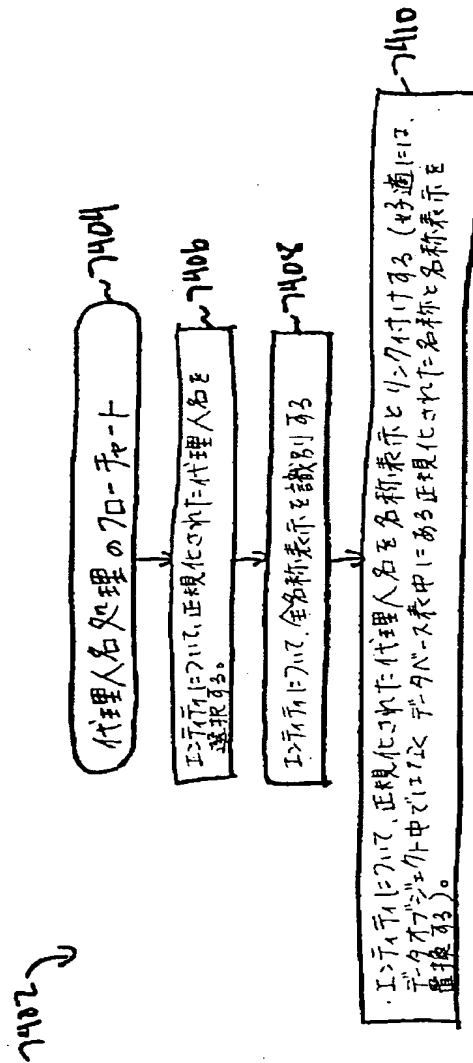 7402
代理人名処理のフローチャート
7404
エンティティについて、正規化された代理人名を
選択する。
7406
エンティティについて、全名称表示を識別する
7408
・エンティティについて、正規化された代理人名を名称表示とリンク付けする(好適には、
データオブジェクト中でではなくデータベース表中にある正規化された名称と名称表示を
置換する)。
7410